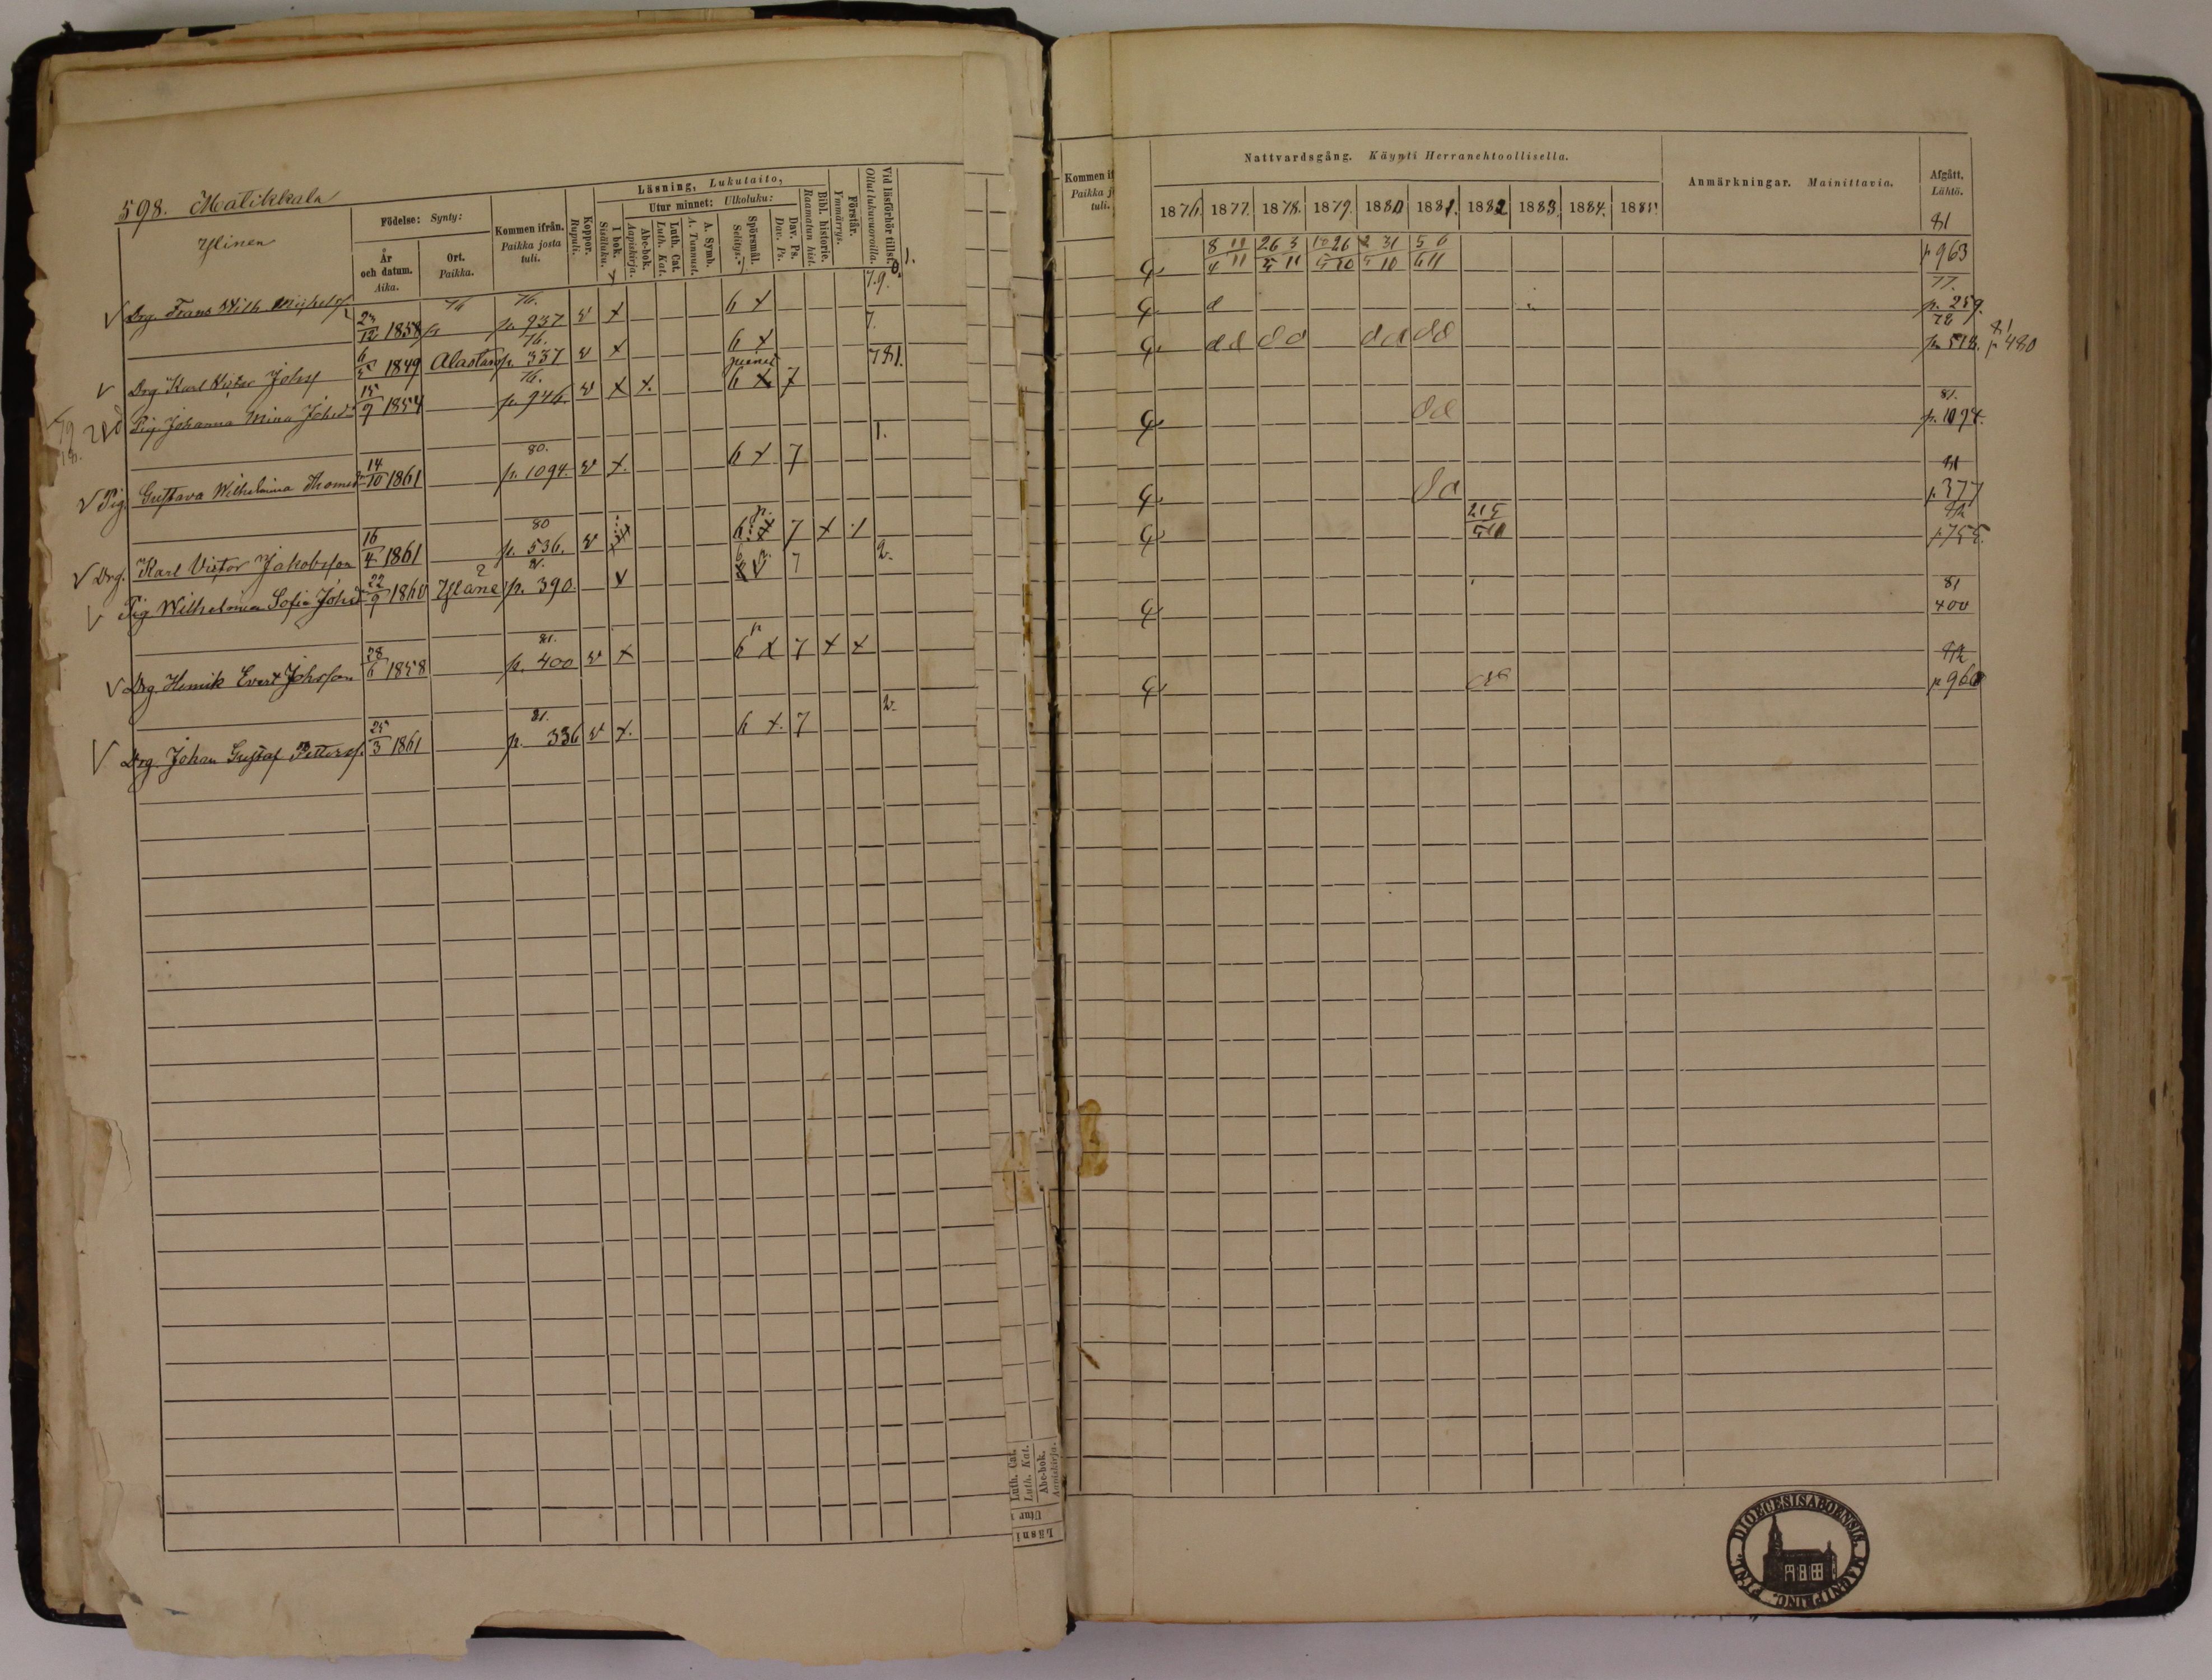 598. Matikkala
Ylinen
Födelse: Synty:
År och datum. Aika.
Ort. Paikka.
Kommen ifrån. Paikka josta tuli.
Koppor. Rupuli.
Läsning, Lukutaito,
I bok. Sisäluku.
Utur minnet: Ulkoluku:
Abc-bok. Aapiskirja.
Luth. Cat. Luth. Kat.
A. Symb. A. Tunnust.
Spörsmål. Selitys.
Dav. Ps. Dav. Ps.
Bibl. historie. Raamatun hist.
Förstår. Ymmärrys.
Vid läsförhör tillst. Ollut lukuvuoroilla.
Kommen if
Paikka j
tuli.
Nattvardsgång. Käynti Herranehtoollisella.
1876. 1877. 1878. 1879. 1880 1881. 1882 1883. 1884. 1885.
Anmärkningar. Mainittavia.
Afgått. Lähtö.
√ Drg. Frans Wilh. 23/12 1858 76. p. 937 v x 6 x 7.9. 8/4 19/11 26/5 3/11 26/10 31/10 5/6 6/11 81 p 963
√ Drg. Karl Victor Johsf 6/5 1849 Alastaro 76. p. 337 v x 6 x 7. d 77. p. 259.
Pig. Johanna Mina Johsd 15/9 1854 76. p. 946. v x x. 6 x 7 781. dd dd dd dd 78 p. 518. 81 p 480
√ Pig. Gustava Wilhelmina Thomasd 14/10 1861 80. p. 1094. v x. 6 x 7 1. dd 81. p. 1094.
√ Drg. Karl Victor Jakobsson 16/4 1861 80 p. 536. v 6 x 7 x 81 p 377
√ Pig Wilhelmina Sofia Johsd 22/9 1860 Yläne p. 390. v 7 2. 82 p 755.
√ Drg. Henrik Evert Johsson 28/6 1858 81. p. 400 v x 6 x 7 x x 81 400
√ Drg. Johan Gustaf Petterss. 25/3 1861 81. p. 336 v x. 6 x. 7 2. 82 p 960
Luth. Cat.
Luth. Kat.
Abc-bok.
Aapiskirja.
Utur
Läsni
FINL. DIOECESIS ABOENSIS. MAGNI PRINC.